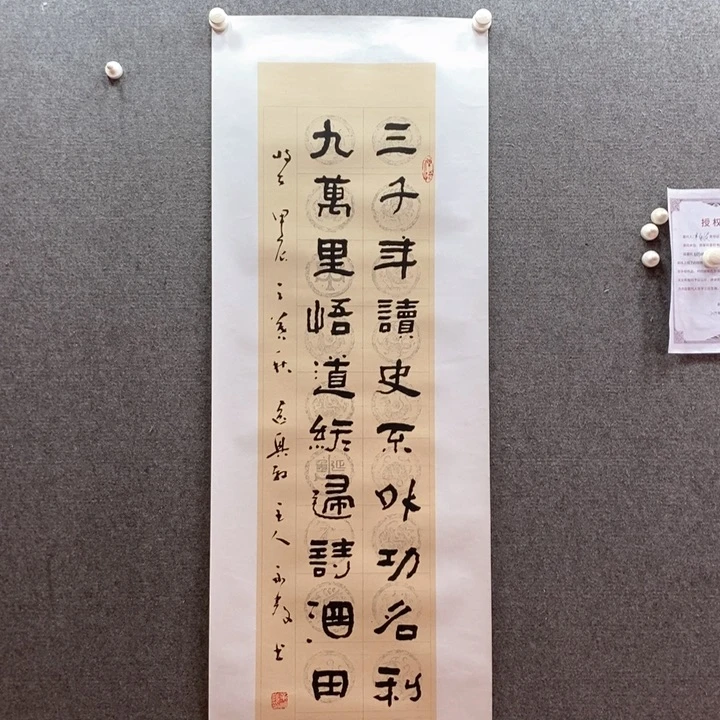 三千年讀史不外功名利
九萬里悟道終歸詩酒田
甲辰之秋 主人 书
授权